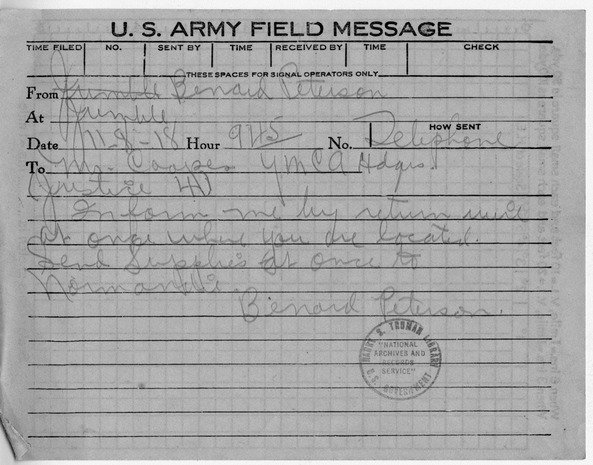 U. S. ARMY FIELD MESSAGE
TIME FILED NO. SENT BY TIME RECEIVED BY TIME CHECK
THESE SPACES FOR SIGNAL OPERATORS ONLY
From Benard Peterson
At
Date 11-8-18 Hour 945 No. Telephone HOW SENT
To Mr. Cooper YMCA Hdqrs.
(Justice 41)
Inform me by return wire
at once where you are located.
Send Supplies at once to
Normandie.
Benard Peterson.
HARRY S. TRUMAN LIBRARY
"NATIONAL
ARCHIVES AND
RECORDS
SERVICE"
U.S. GOVERNMENT